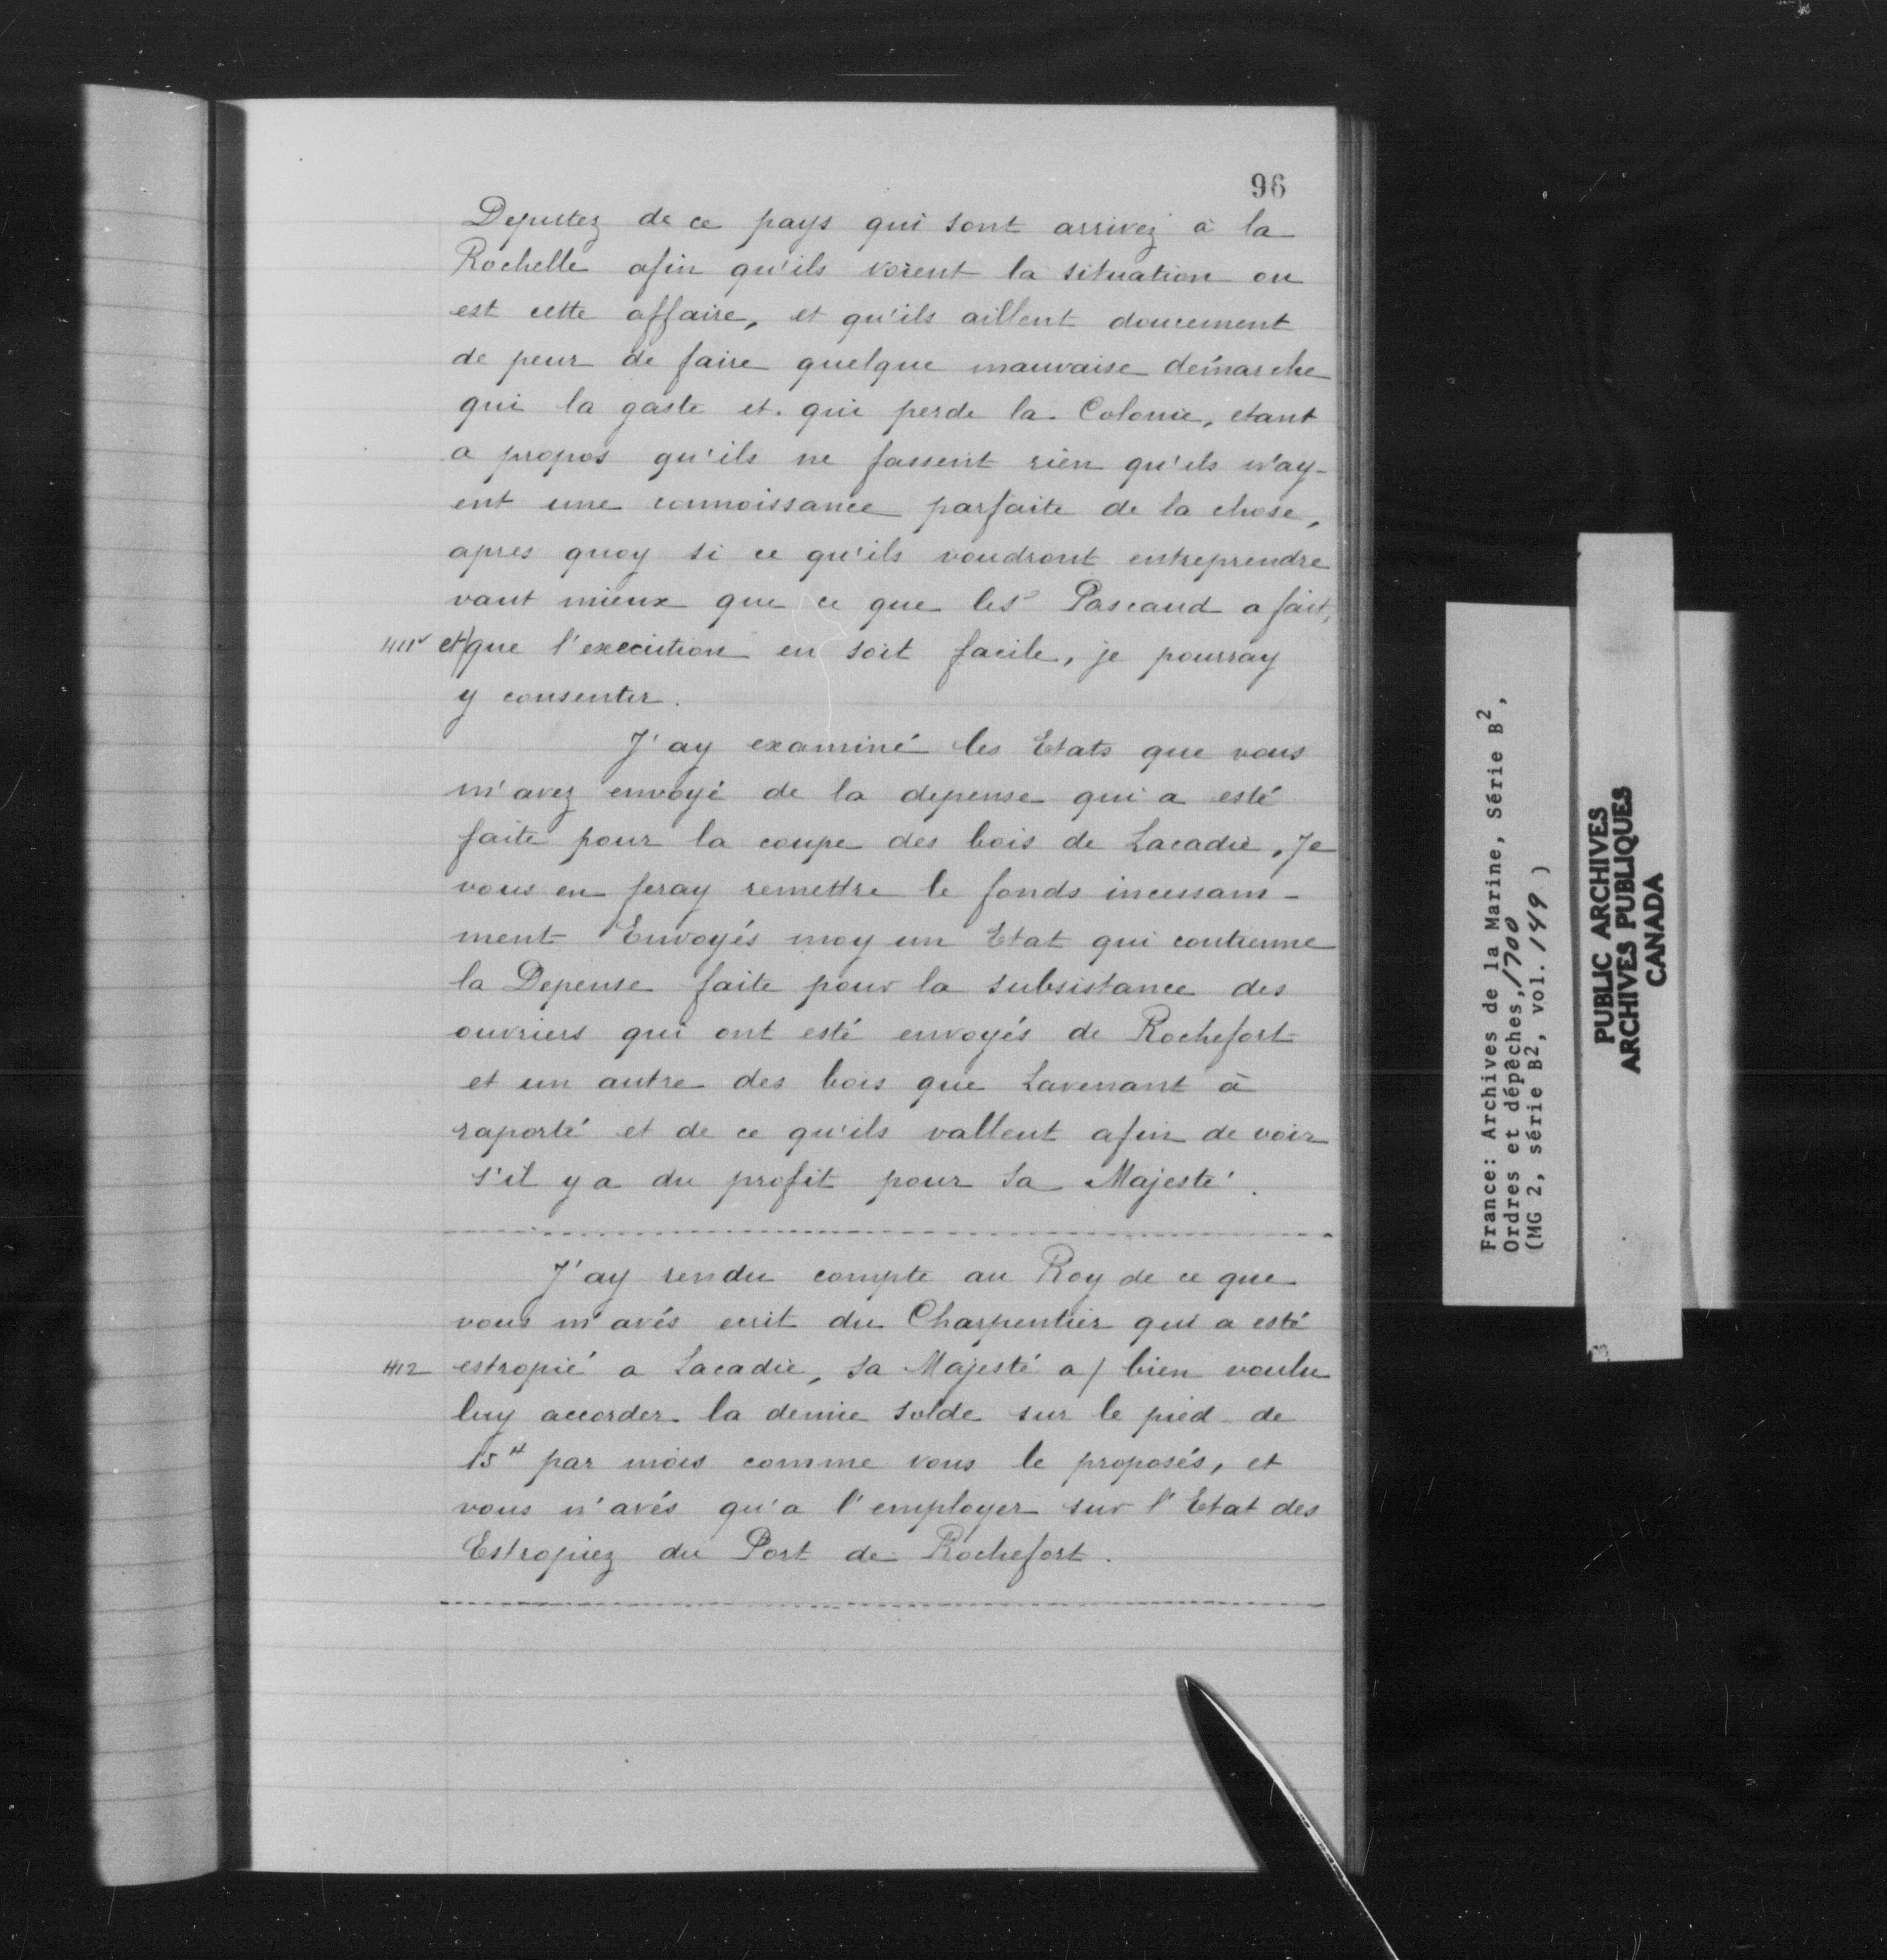 96
Deputez de ce pays qui sont arrivez à la
Rochelle afin qu'ils voient la situation ou
est cette affaire, et qu'ils aillent doucement
de peur de faire quelque mauvaise démarche
qui la gaste et qui perde la Colonie, etant
a propos qu'ils ne fassent rien qu'ils n'ay-
ent une connoissance parfaite de la chose,
apres quoy si ce qu'ils voudront entreprendre
vaut mieux que ce que le Sr Pascaud a fait,
411v et/que l'execution en soit facile, je pourray
y consentir.
J'ay examiné les Etats que vous
m'avez envoyé de la depense qui a esté
faite pour la coupe des bois de Lacadie, Je
vous en feray remettre le fonds incessam-
ment Envoyés moy un Etat qui contienne
la Depense faite pour la subsistance des
ouvriers qui ont esté envoyés de Rochefort
et un autre des bois que Lavenant à
raporté et de ce qu'ils vallent afin de voir
s'il y a du profit pour Sa Majesté.
J'ay rendu compte au Roy de ce que
vous m'avés ecrit du Charpentier qui a esté
412 estropié a Lacadie, Sa Majesté a / bien voulu
luy accorder la demie solde sur le pied de
15# par mois comme vous le proposés, et
vous n'avés qu'a l'employer sur l'Etat des
Estropiez du Port de Rochefort.
France: Archives de la Marine, Série B2,
Ordres et dépêches, 1700
(MG 2, série B2, vol. 149 )
PUBLIC ARCHIVES
ARCHIVES PUBLIQUES
CANADA